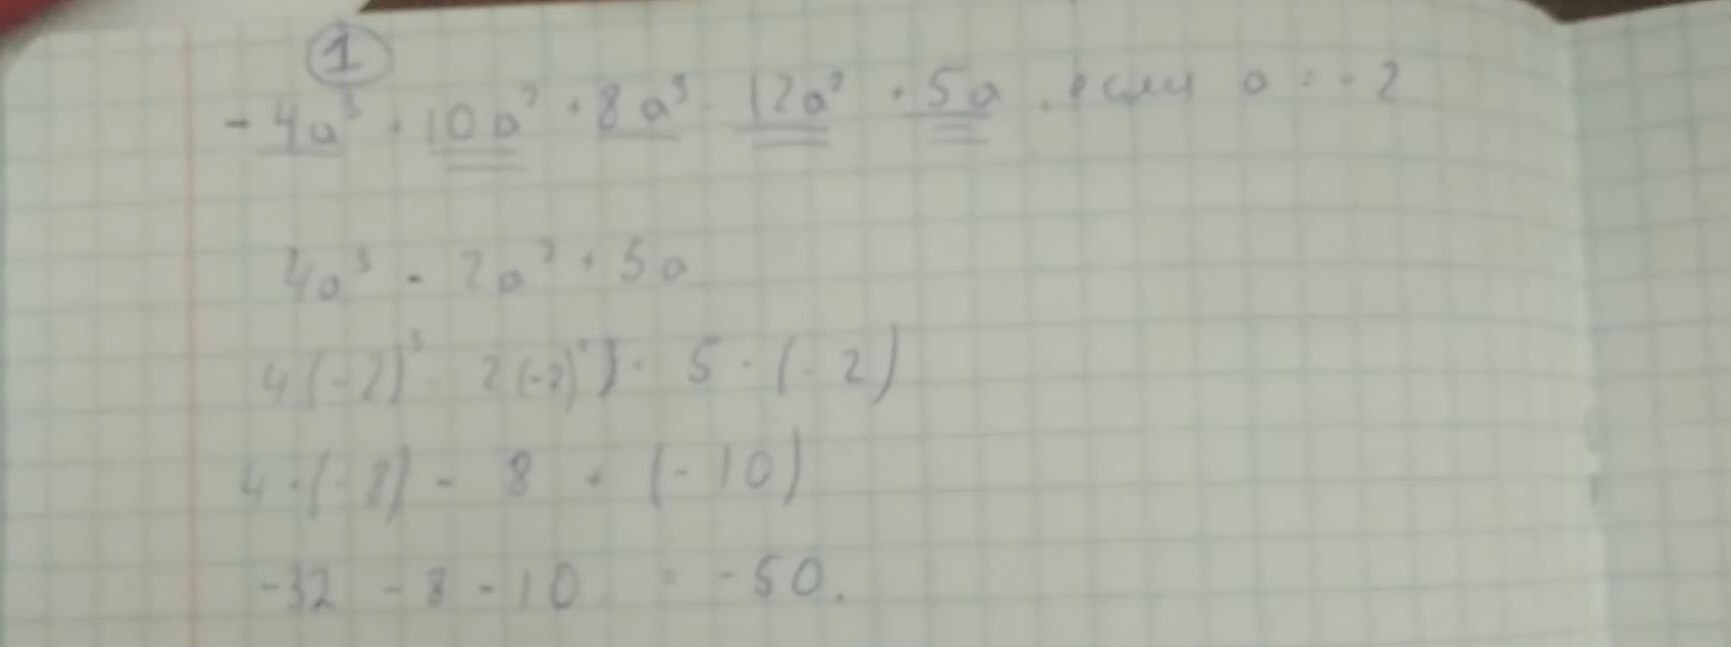 1
-4a³ + 10a² + 8a³ - 12a² + 5a, если a = -2
4a³ - 2a² + 5a
4(-2)³ - 2(-2)² + 5 · (-2)
4 · (-8) - 8 + (-10)
-32 - 8 - 10 = -50.